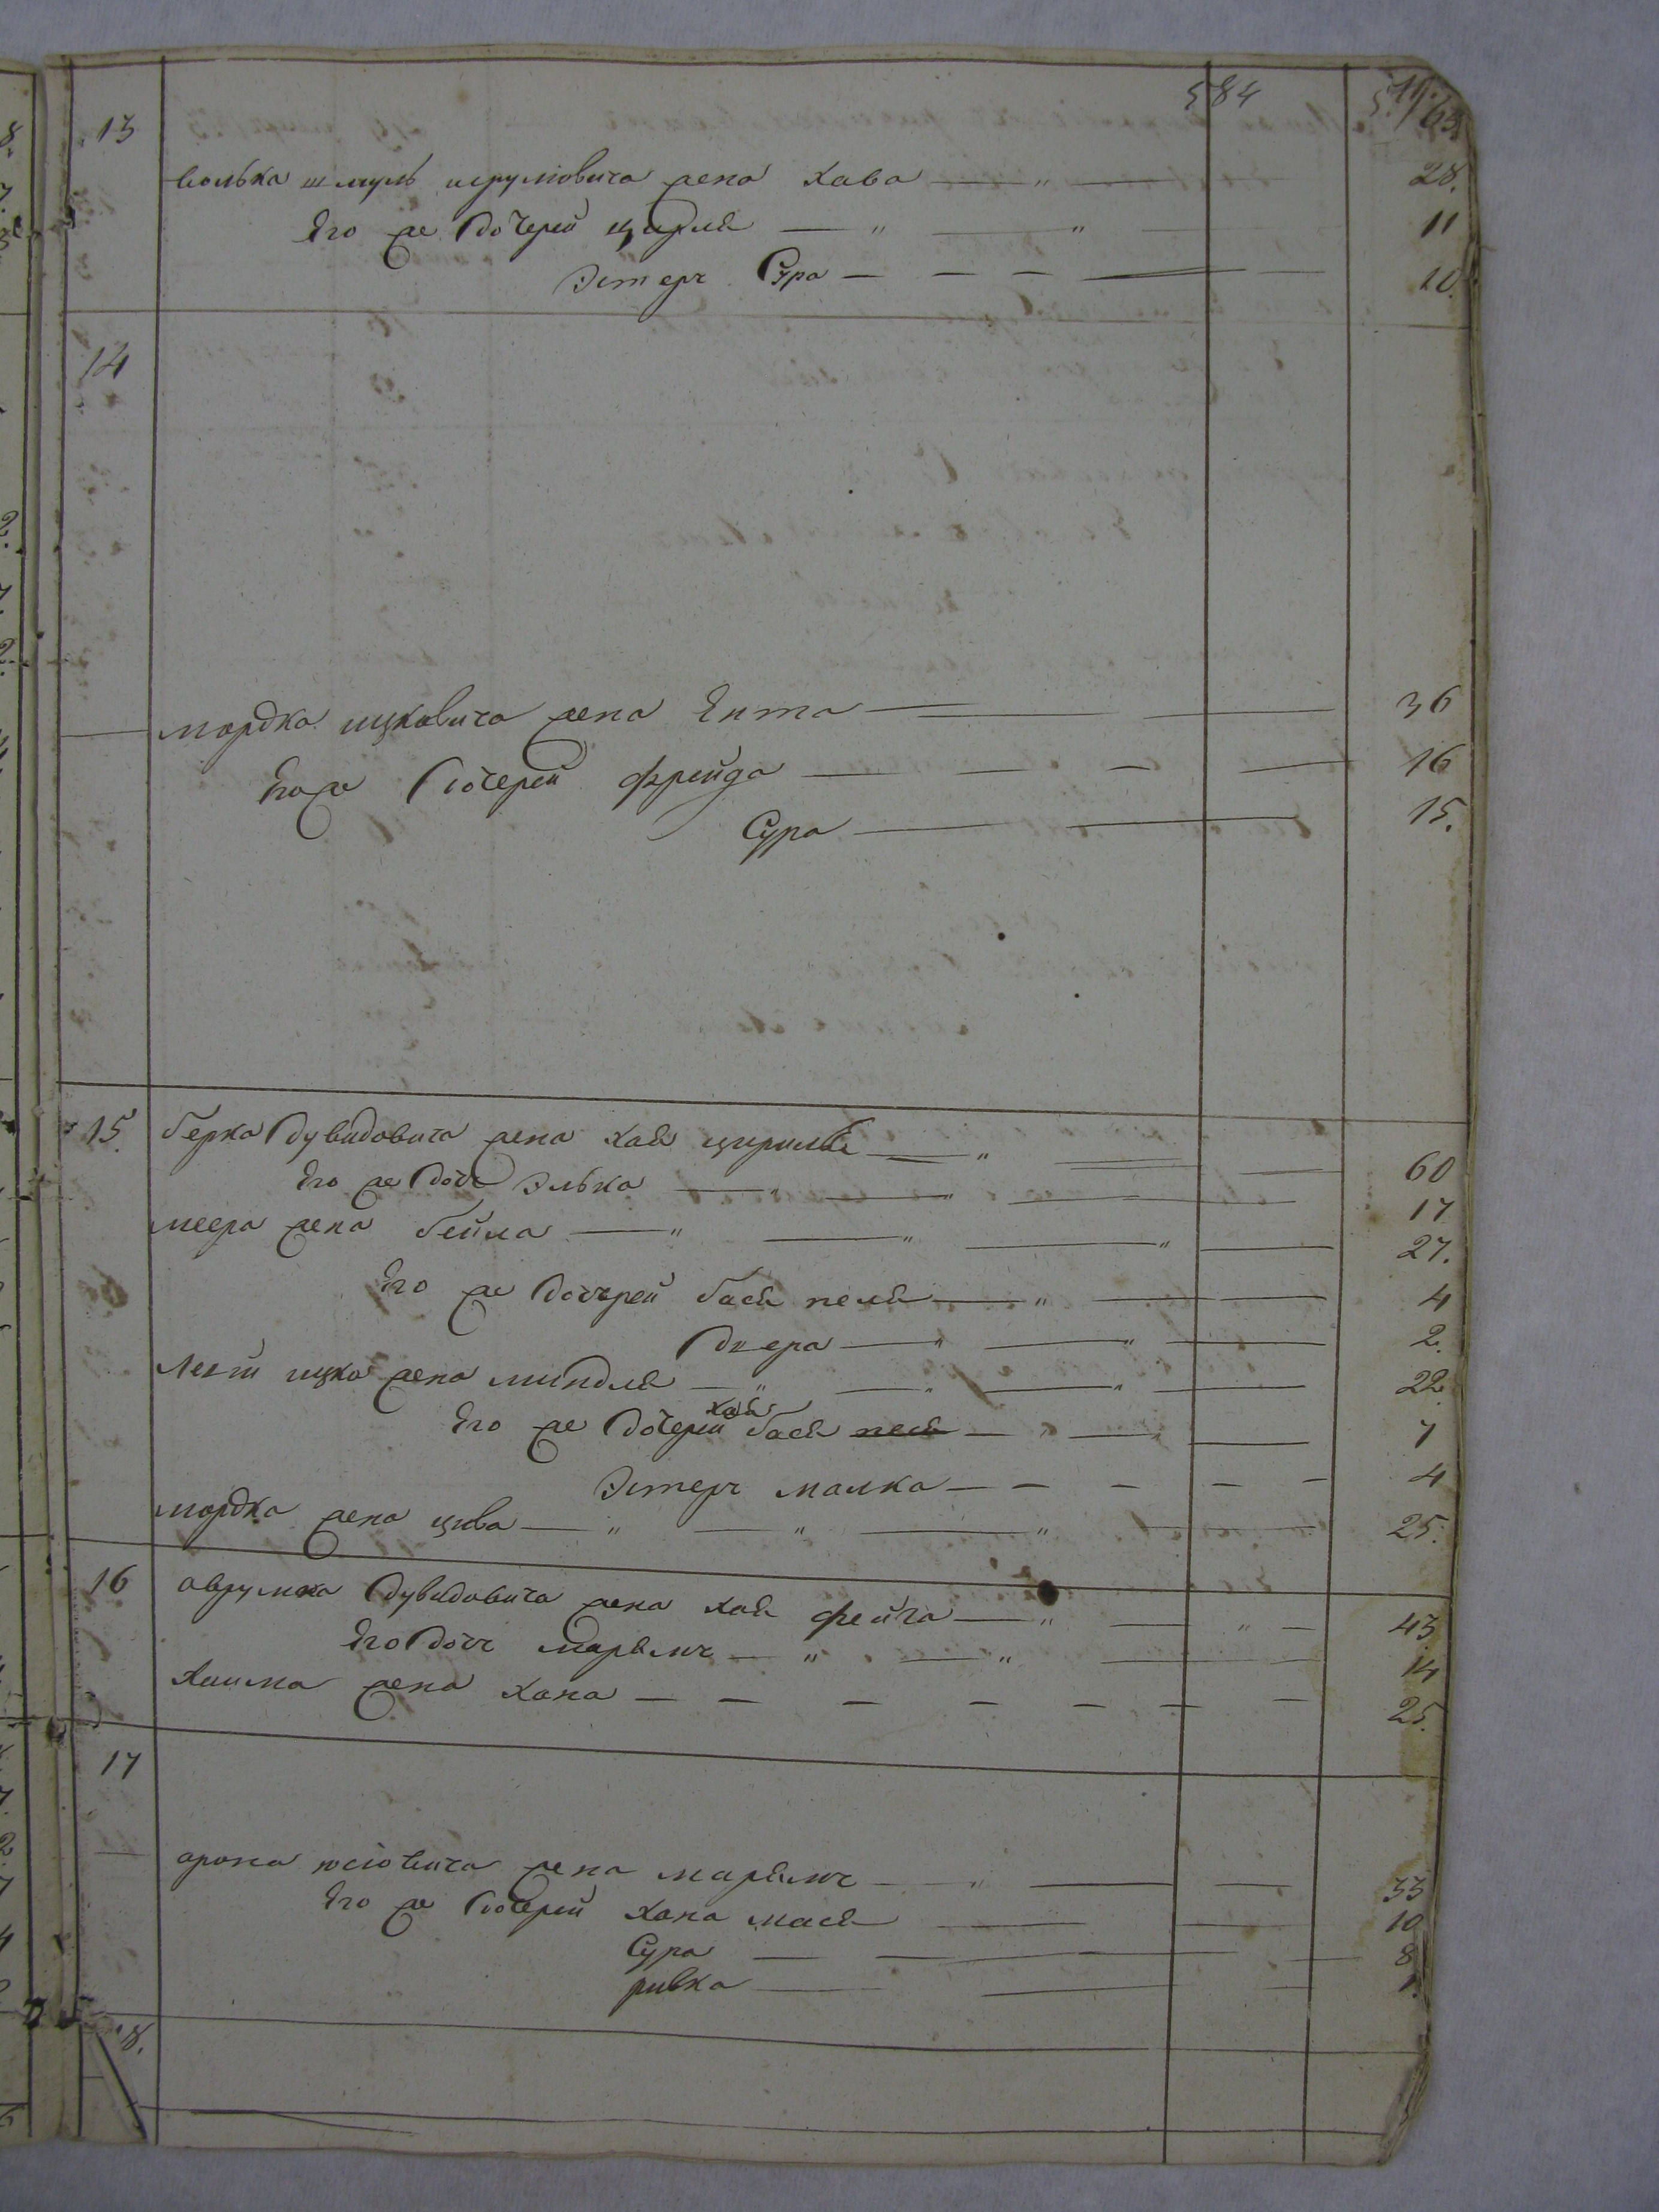 584
13
волька шмуль жена Хава — " — 28.
Его же дочерей цирля — " — " — 11
Эстеръ Сура — — — 10.
14
мордка ицковича жена Ента — 36
Его же дочерей фрейда — — — 16
Сура — 15.
15. берка дувидовича жена хая цирилья — " — 60
Его же дочь Элька — — " — 17
меера жена бейла — " — " — " — 27.
Его же дочерей бася пеля — " — 4
двера — " — " — 2.
ицко жена миндля — " — " — " — 22
хая
Его же дочерей бася — " — " — 7
Эстеръ малка — — — — — 4
мордка жена цива — " — " — " — 25.
16 аврумка дувидовича жена хая фейга — " — " — 43.
Его дочь марьямъ — " — " — 14
Хаима жена хана — — — — — — — 25.
17
арона иосiовича жена марьямъ — " — 33
Его же дочерей хана мася — 10
Сура — 8
ривка — 1.
18.